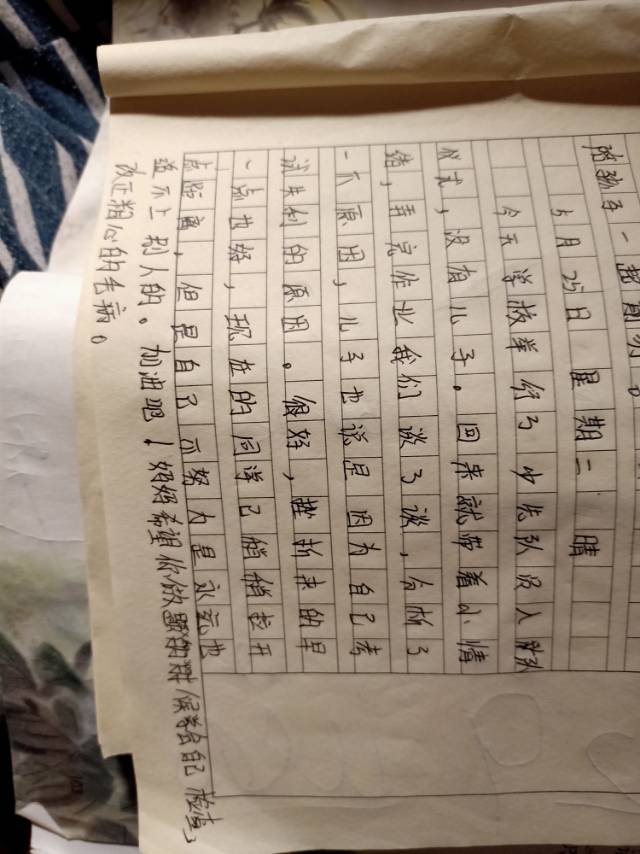 5月25日 星期二 晴
今天学校举行了少先队员入队
仪式，没有儿子。回来就带着小情
绪，弄完作业我们谈了谈，分析了
一下原因，儿子也说是因为自己考
试失利的原因。很好，挫折来的早
一点也好，现在的同学已悄悄拉开
点距离，但是自己不努力是永远也
追不上别人的。加油吧！妈妈希望你做题的时候学会自己检查，
改正粗心的毛病。